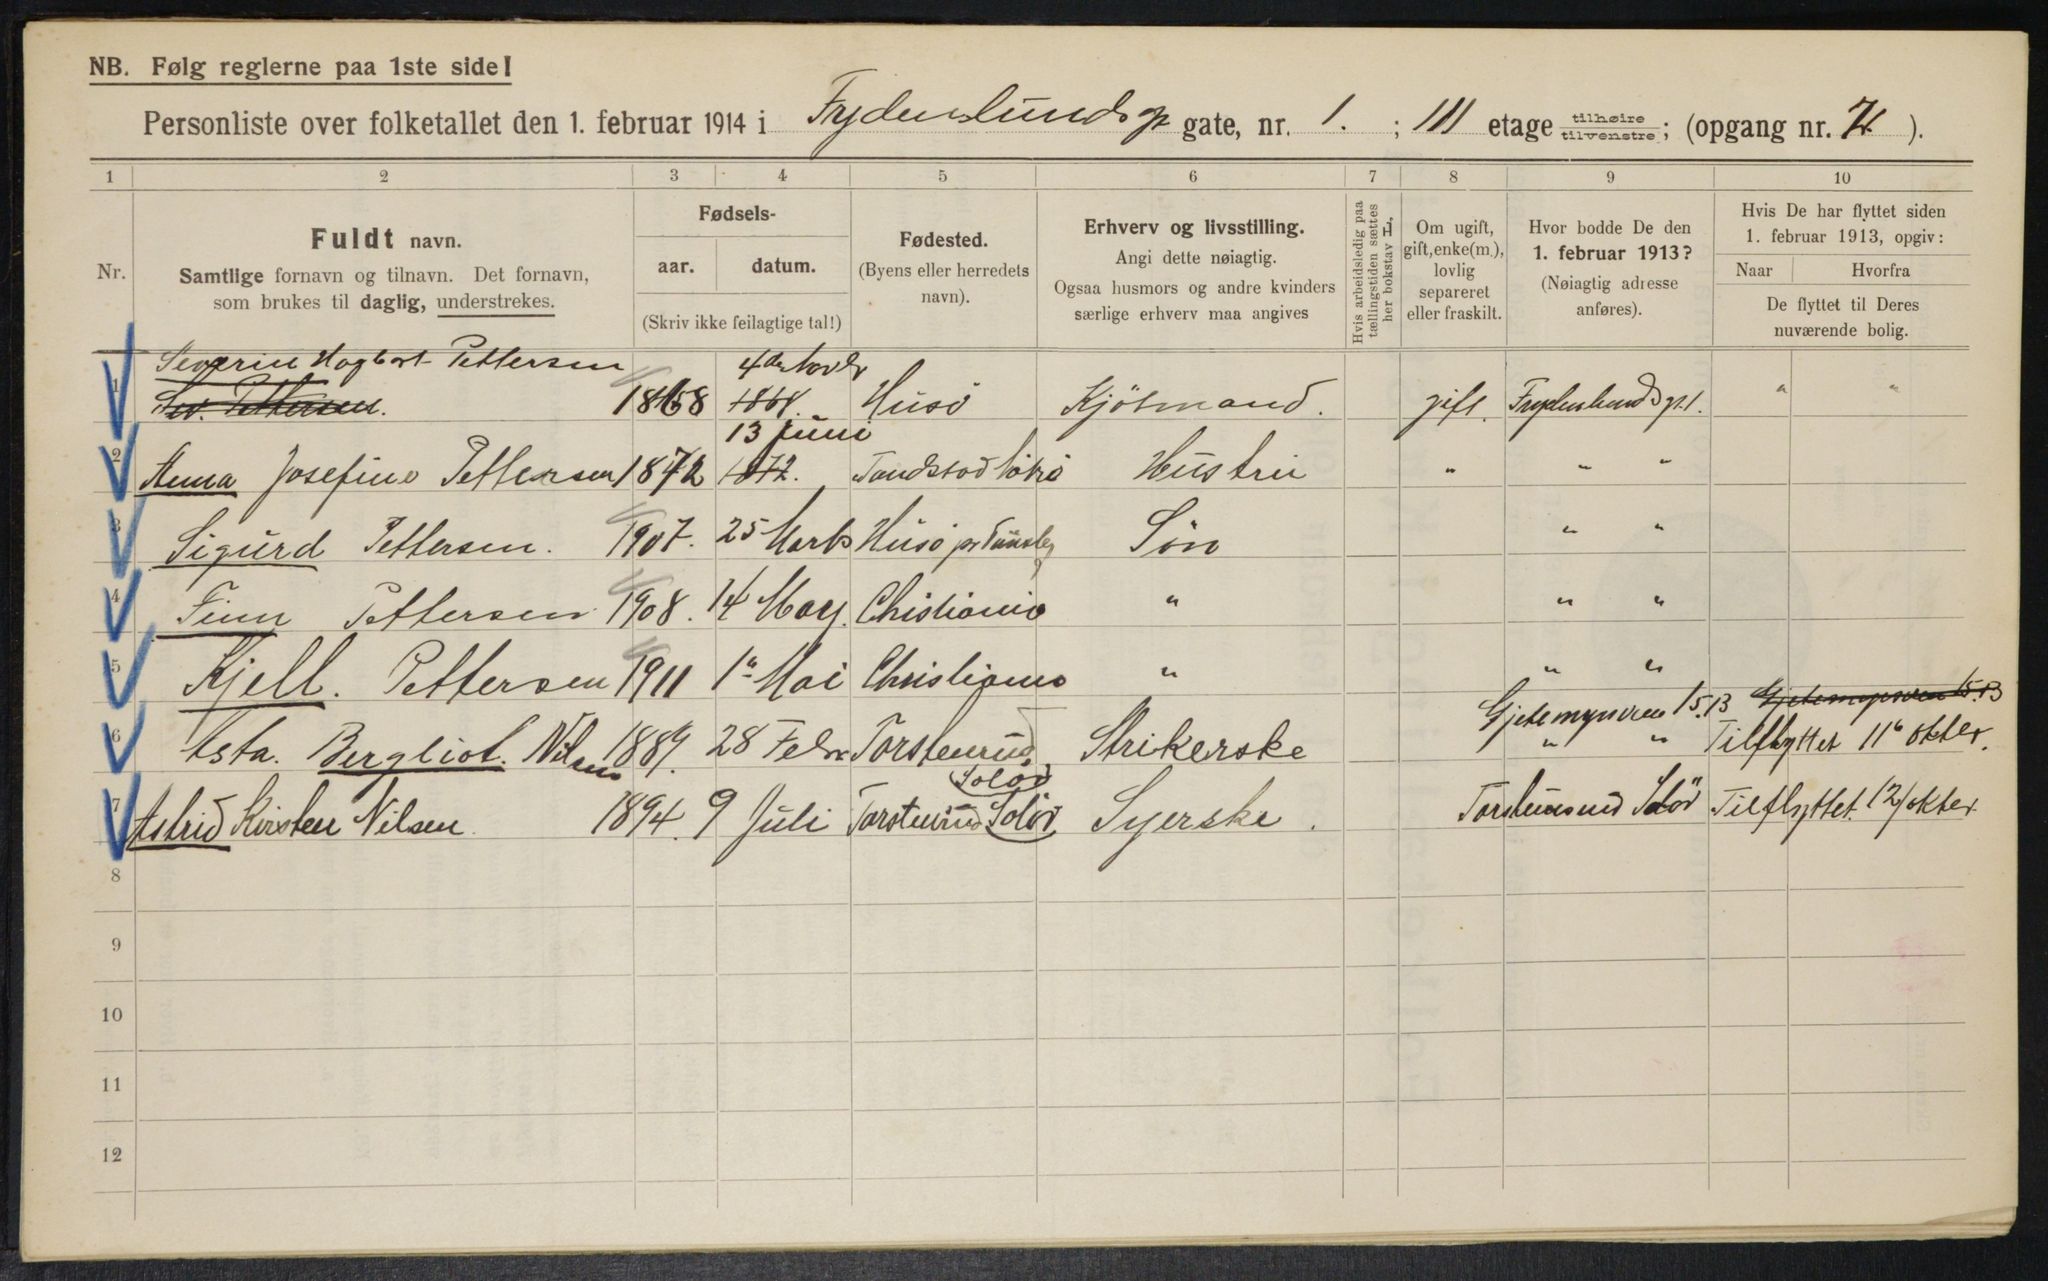 NB. Følg reglerne paa 1ste side!
Personliste over folketallet den 1. februar 1914 i Frydenlundsgt gate, nr. 1. ; III etage tilhøire tilvenstre; (opgang nr. ).
1 2 3 4 5 6 7 8 9 10
Nr.
Fuldt navn.
Samtlige fornavn og tilnavn. Det fornavn,
som brukes til daglig, understrekes.
Fødsels-
aar. datum.
(Skriv ikke feilagtige tal!)
Fødested.
(Byens eller herredets
navn).
Erhverv og livsstilling.
Angi dette nøiagtig.
Ogsaa husmors og andre kvinders
særlige erhverv maa angives
Hvis arbeidsledig paa
tællingstiden sættes
her bokstav L.
Om ugift,
gift, enke(m.),
lovlig
separeret
eller fraskilt.
Hvor bodde De den
1. februar 1913?
(Nøiagtig adresse
anføres).
Hvis De har flyttet siden
1. februar 1913, opgiv:
Naar Hvorfra
De flyttet til Deres
nuværende bolig.
Severin Hagbart Pettersen 4de Novbr
1 Sev. Pettersen. 1868 1868. Husö Kjötmand. gift. Frydenlundsgt. 1. " "
13 Juni
2 Anna Josefine Pettersen 1872 1872. Hustru " " "
3 Sigurd Pettersen. 1907. 25 Marts Husö pr Tönsberg Sön " "
4 Finn Pettersen 1908. 14 May. Chistiania " " "
5 Kjell. Pettersen 1911 1" Mai Christiania " " "
Gjetemyrsveien 15.13 Gjetemyrsveien 15.13
6 Asta. Bergliot. Nilsen 1889. 28 Febr Torstenrud Strikerske " " Tilflyttet 11" okter.
Solör
7 Astrid Kirsten Nilsen 1894. 9 Juli Torstenrud Solör Syerske. Torstenrud Solör Tilflyttet. 12/okter
8
9
10
11
12